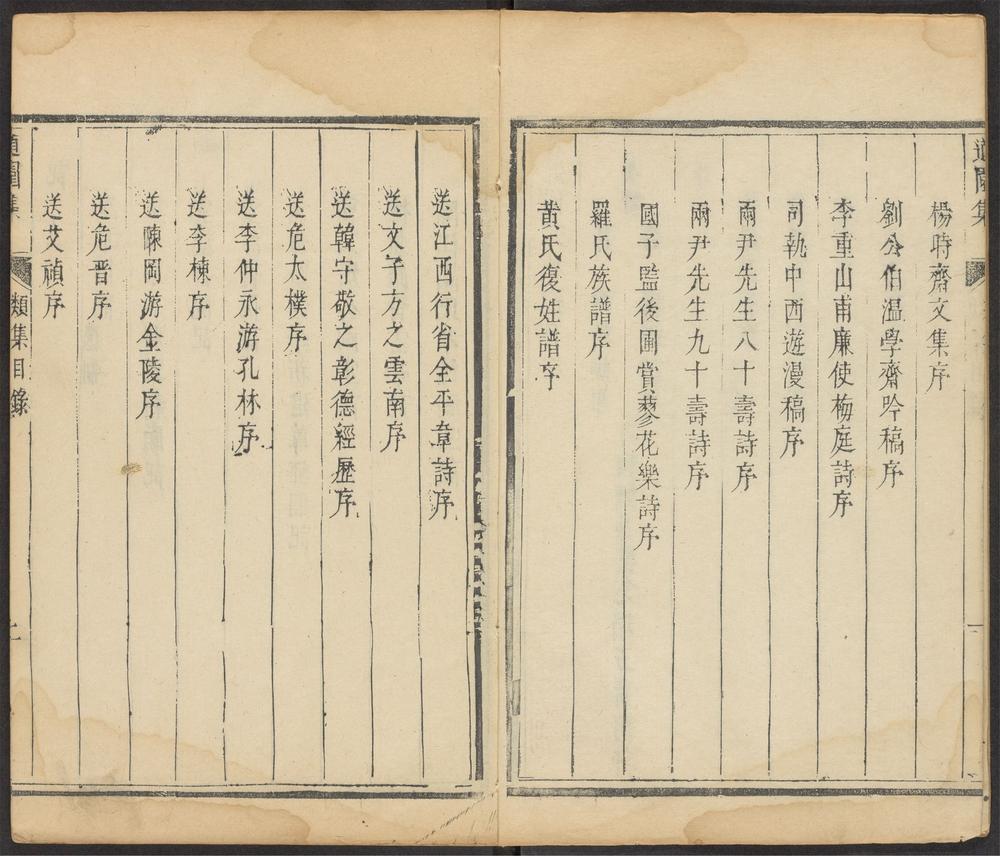 道園集
楊時齋文集序
劉公伯溫學齋吟稿序
李重山甫廉使梅庭詩序
司執中西遊漫稿序
兩尹先生八十壽詩序
兩尹先生九十壽詩序
國子監後圃賞蓼花樂詩序
羅氏族譜序
黃氏復姓譜序
送江西行省全平章詩序
送文子方之雲南序
送韓守敬之彰德經歷序
送危太樸序
送李仲永游孔林序
送李棟序
送陳岡游金陵序
送危晋序
送艾禎序
道園集 類集目錄